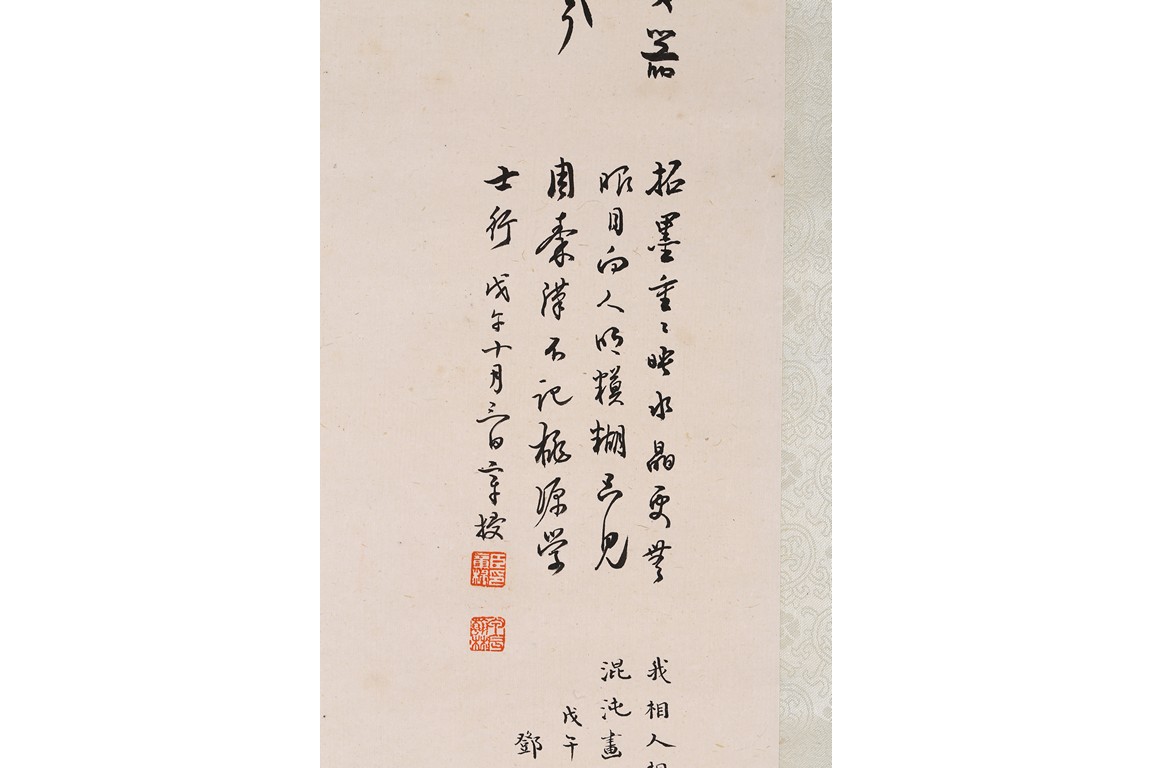 器
拓墨重〻映水晶更無
眼目向人明糢糊只見
周秦漢不記桃源學
士行 戊午十月三日
我相人
混沌畫
戊午
鄧